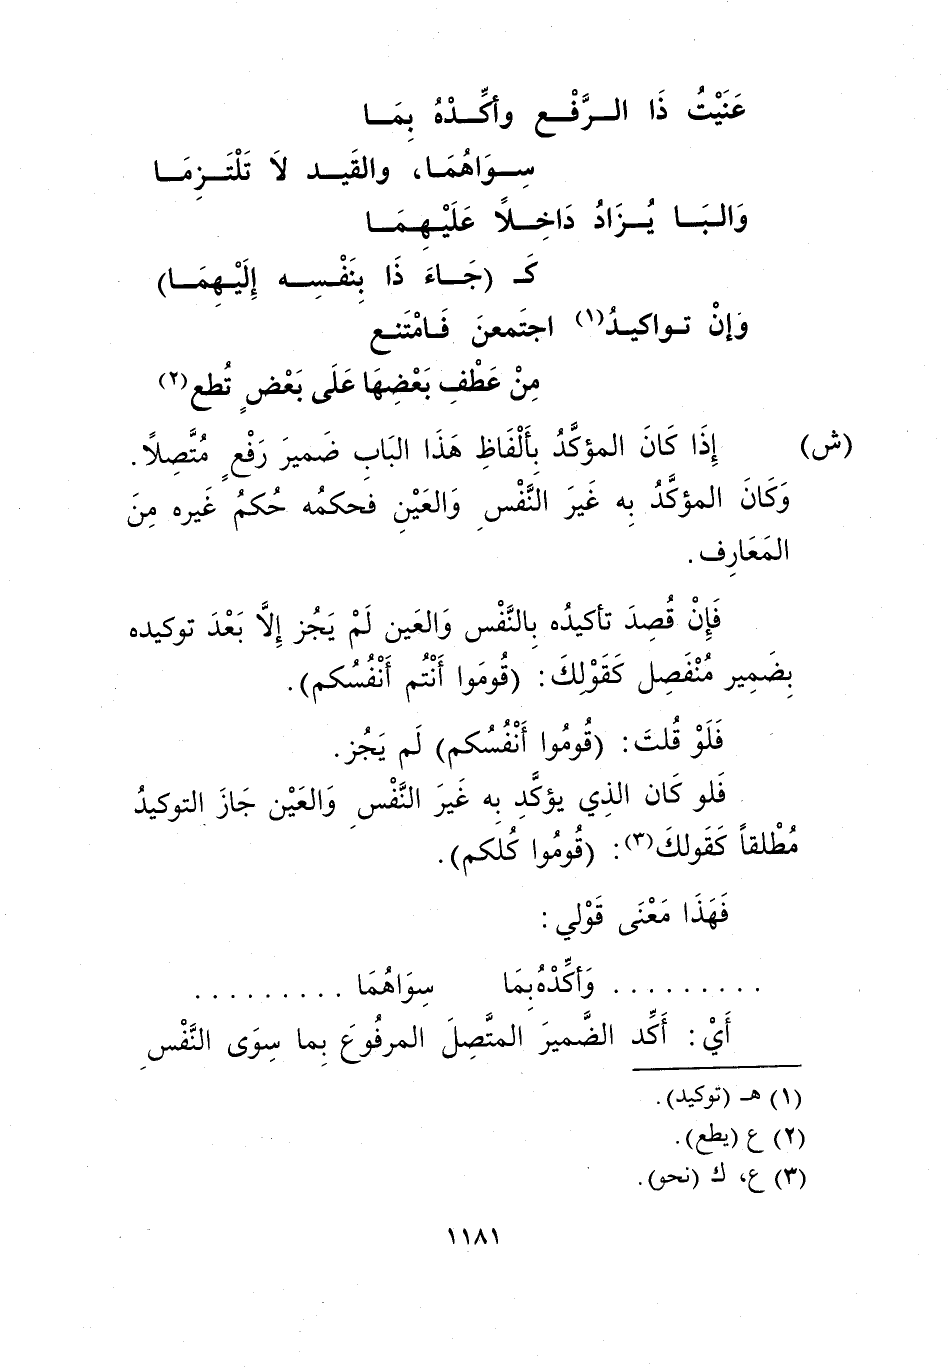 عَنَيْتُ ذَا الـرَّفْـعِ وأكِّـدْهُ بِمَـا
سِـوَاهُمَـا، والقَيـد لاَ تَلْتَـزِمَـا
وَالبَـا يُـزَادُ دَاخِـلاً عَلَيْـهِمَـا
كَـ (جَـاءَ ذَا بِنَفْـسِـه إِلَيْـهِمَـا)
وَإنْ تـواكيـدُ(١) اجتَمعنَ فَـامْتَنـع
مِنْ عَطْفِ بَعْضِهَا عَلَى بَعْضٍ تُطع(٢)
(ش) إِذَا كَانَ المؤكَّدُ بِأَلْفَاظِ هَذَا البَابِ ضَميرَ رَفْعٍ مُتَّصِلاً.
وَكَانَ المؤكَّدُ به غَيرَ النَّفْسِ وَالعَيْنِ فحكمُه حُكمُ غَيره مِنَ
المَعَارِف.
فَإِنْ قُصِدَ تأكيدُه بِالنَّفْسِ وَالعَين لَمْ يَجُز إِلَّا بَعْدَ توكيده
بِضَمِير مُنْفَصِل كَقَوْلِكَ: (قُومَوا أَنْتُم أَنْفُسُكم).
فَلَوْ قُلتَ: (قُومُوا أَنْفُسُكم) لَم يَجُز.
فَلو كَان الذِي يؤكَّدِ به غَيرَ النَّفْسِ وَالعَيْن جَازَ التوكيدُ
مُطْلقاً كَقَولكَ(٣): (قُومُوا كُلكم).
فَهَذَا مَعْنَى قَوْلي:
......... وَأكِّدْهُ بِمَا سِوَاهُمَا .........
أَيْ: أَكِّد الضَّميرَ المتَّصِلَ المرفُوعَ بِما سِوَى النَّفْسِ
(١) هـ (توكيد).
(٢) ع (يطع).
(٣) ع، ك (نحو).
١١٨١